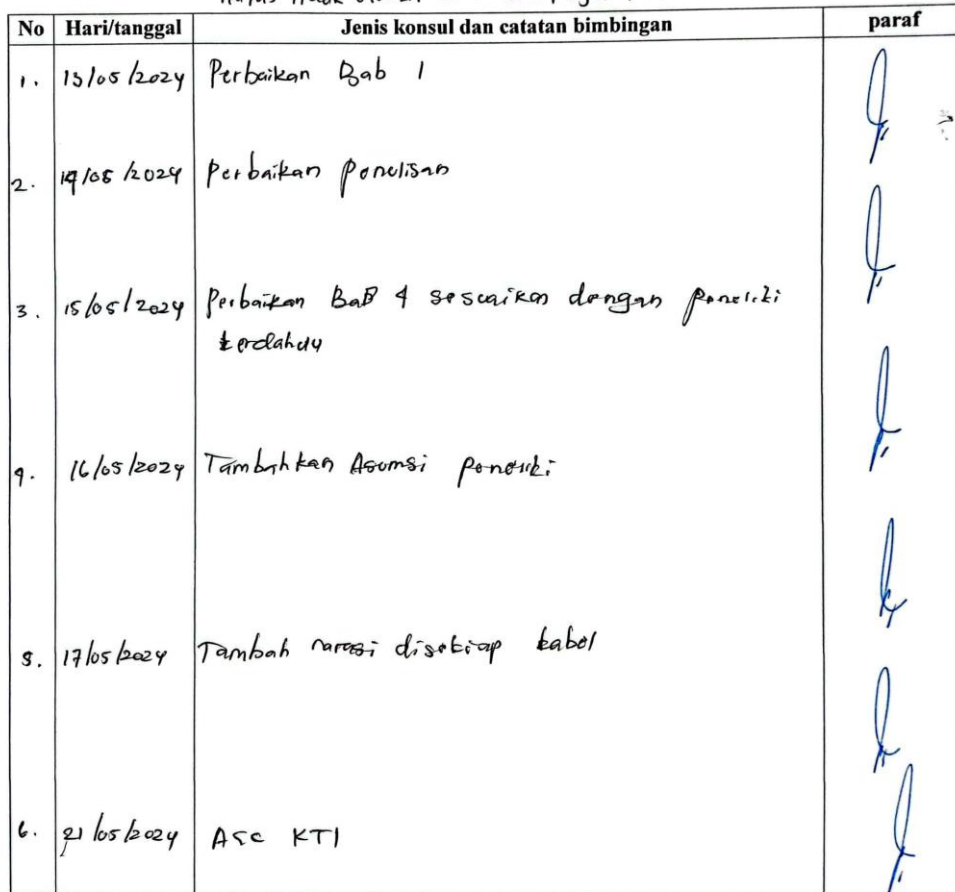 No Hari/tanggal Jenis konsul dan catatan bimbingan paraf
1. 13/05/2024 Perbaikan Bab 1
2. 14/05/2024 Perbaikan Penulisan
3. 15/05/2024 Perbaikan BaB 4 sesuaikan dengan peneliti
terdahulu
4. 16/05/2024 Tambahkan Asumsi peneliti
5. 17/05/2024 Tambah narasi disetiap tabel
6. 21/05/2024 Acc KTI